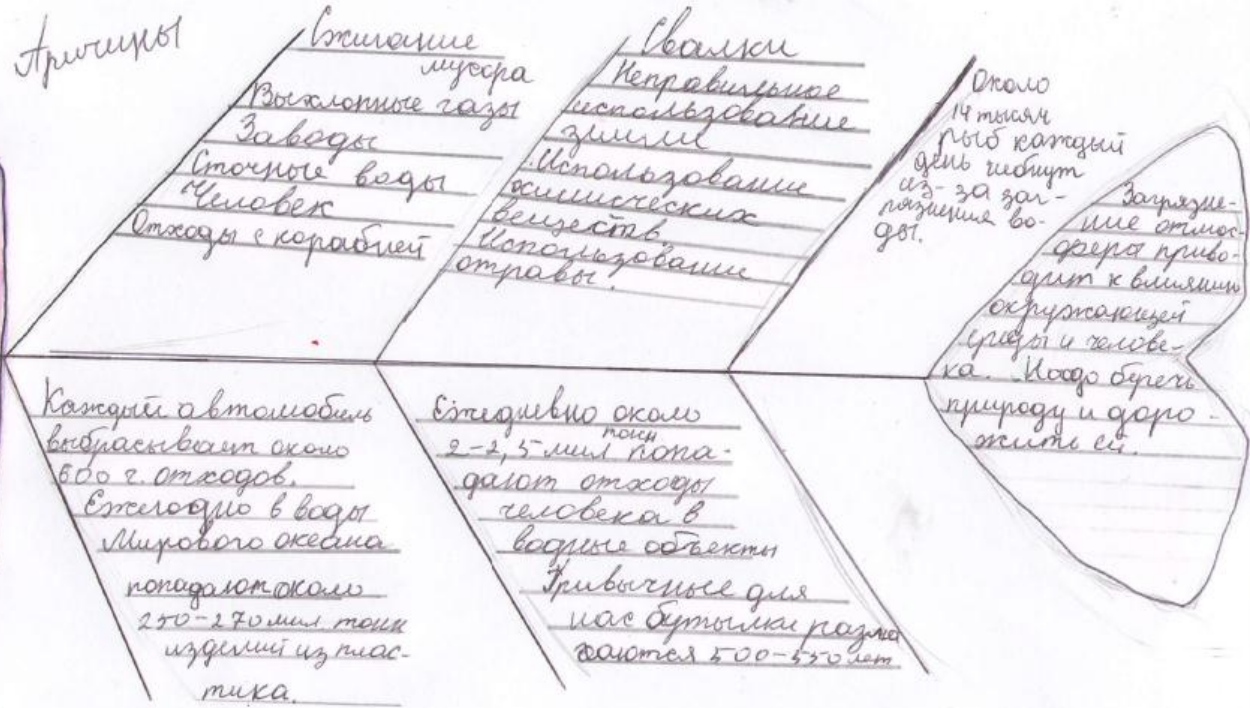 Причины
Сжигание
мусора
Выхлопные газы
Заводы
Сточные воды
Человек
Отходы с кораблей
Свалки
Неправильное
использование
земли
Использование
химических
веществ
Использование
отравы.
Около
14 тысяч
рыб каждый
день гибнут
из-за заг-
рязнения во-
ды.
Загрязне-
ние атмос-
феры приво-
дит к влиянию
окружающей
среды и челове-
ка. Надо беречь
природу и доро-
жить ей.
Каждый автомобиль
выбрасывает около
600 г. отходов.
Ежегодно в воды
Мирового океана
попадают около
250-270 мил тонн
изделий из плас-
тика.
Ежедневно около
тонн
2-2,5 мил попа-
дают отходы
человека в
водные объекты
Привычные для
нас бутылки разла
гаются 500-550 лет